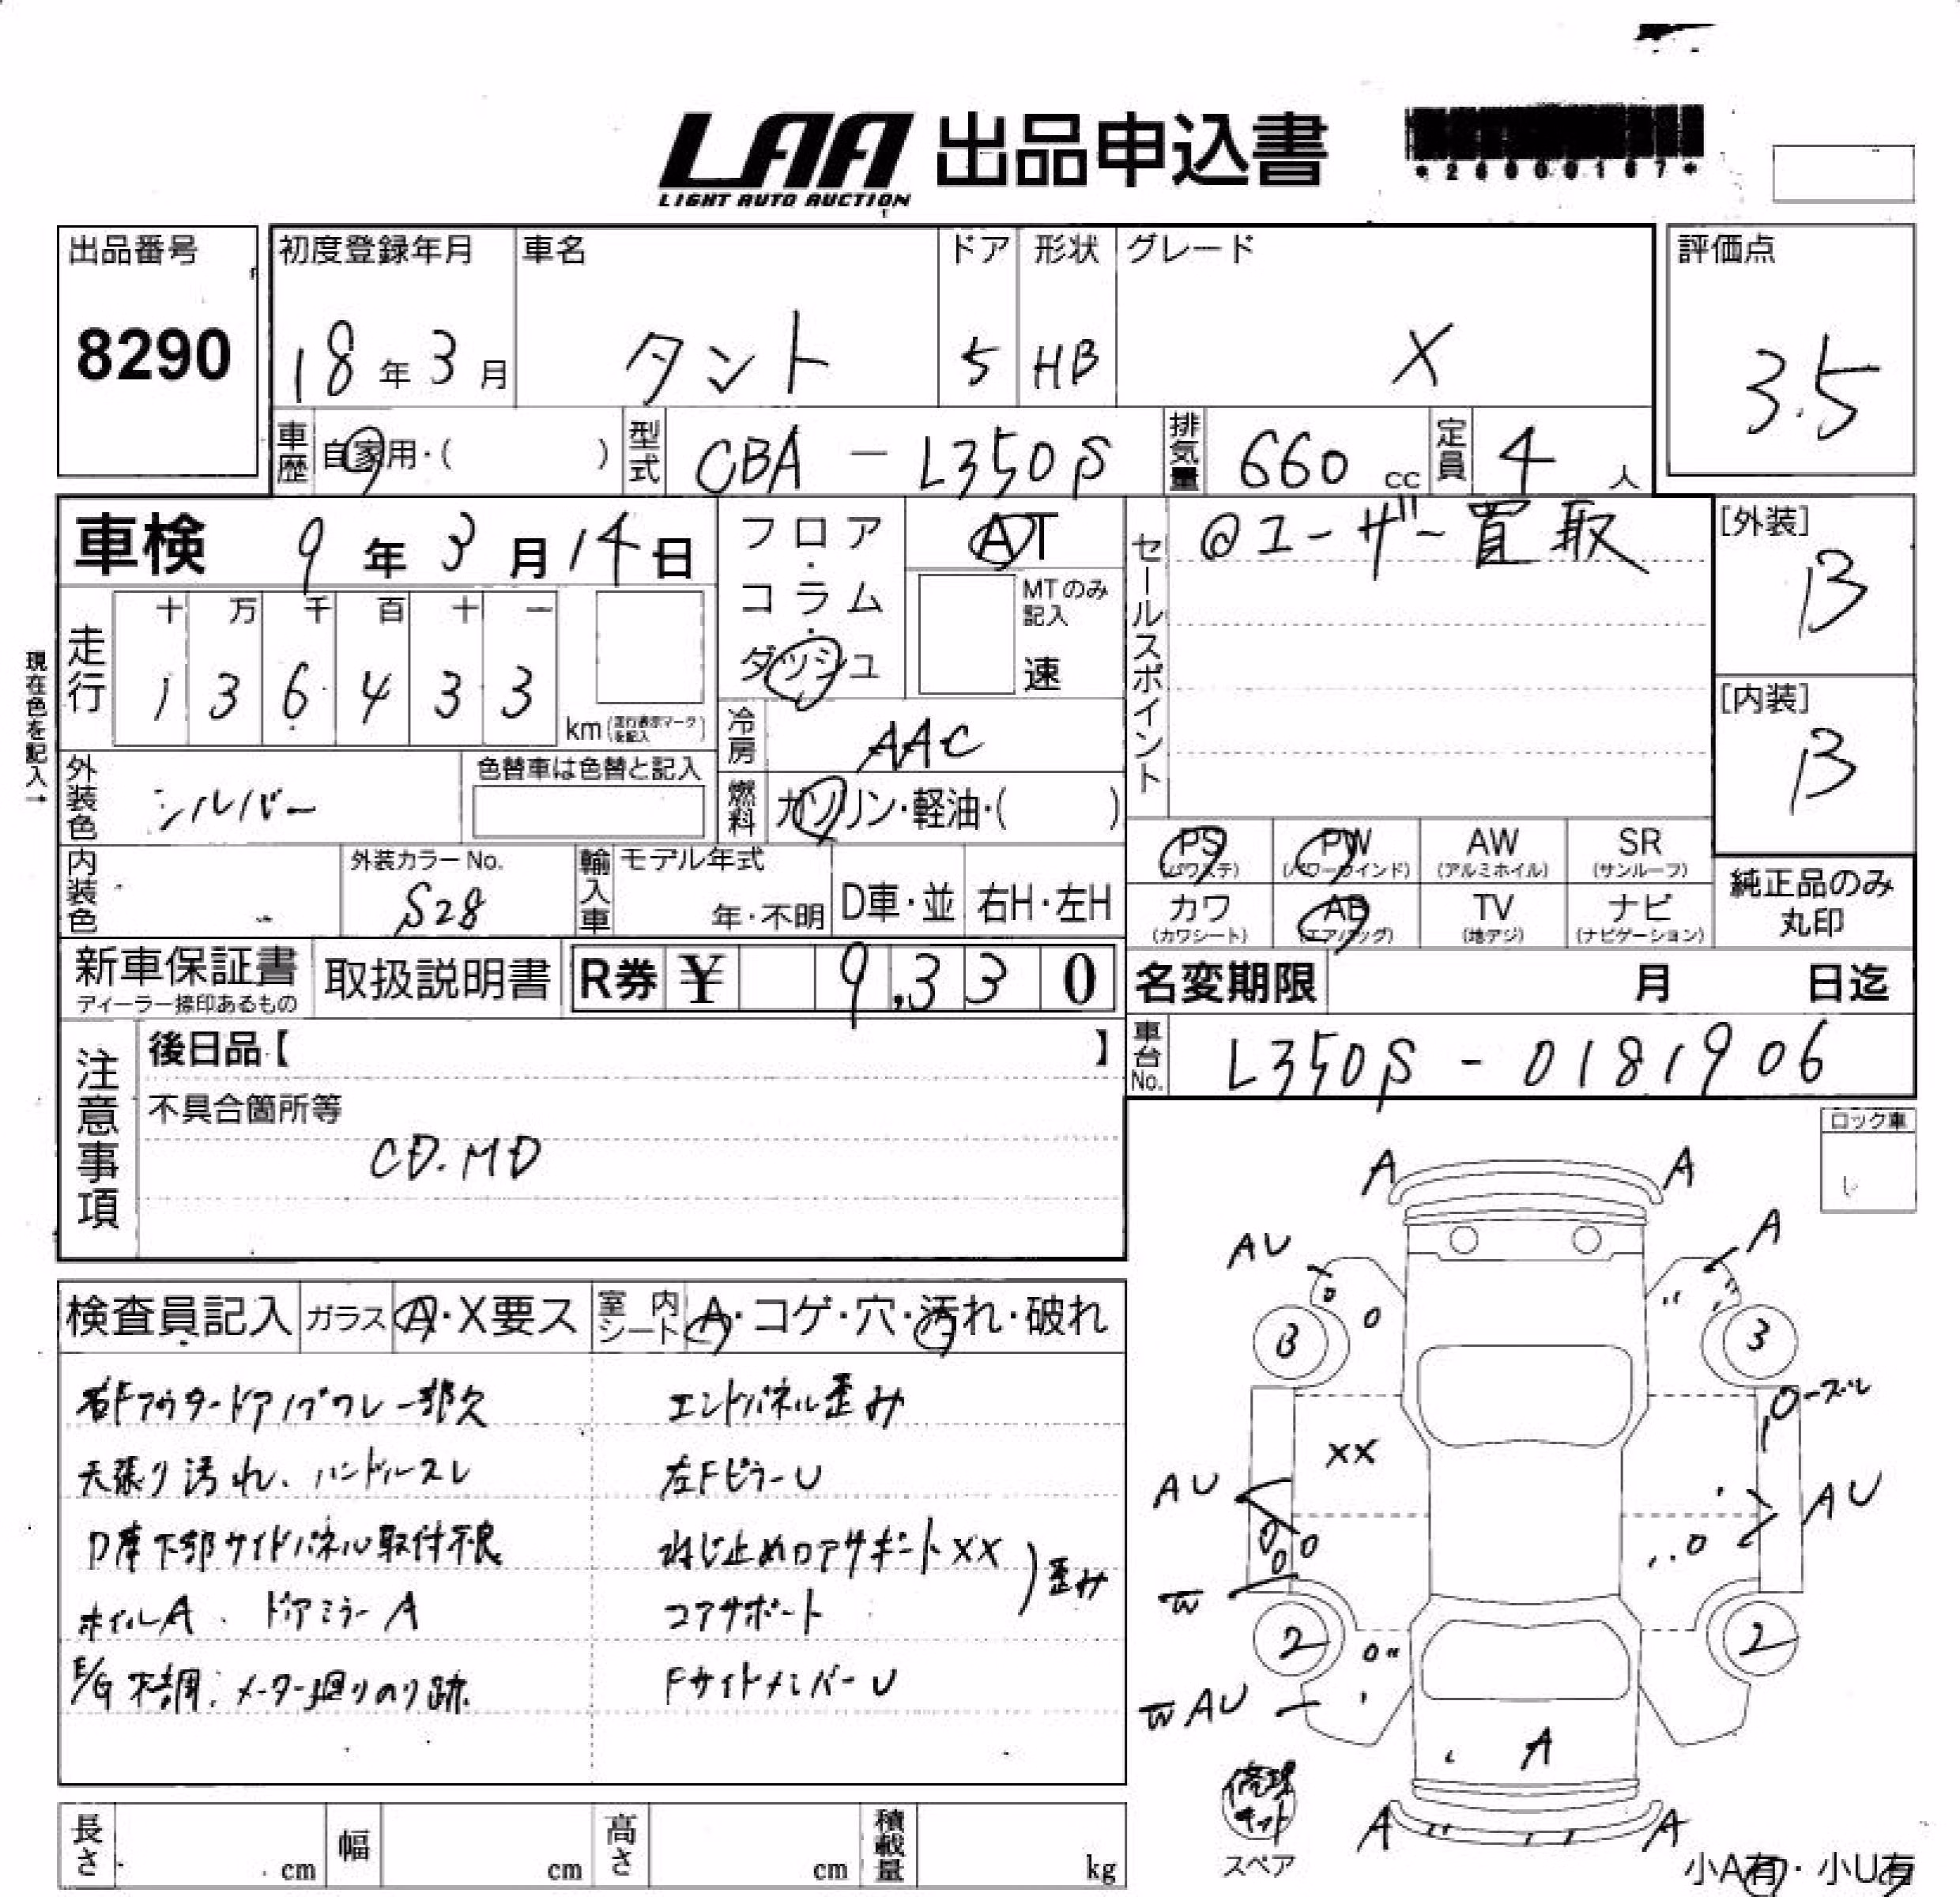 LAA 出品申込書
LIGHT AUTO AUCTION
*26000167*
出品番号
8290
初度登録年月
18年3月
車名
タント
ドア
5
形状
HB
グレード
X
評価点
3.5
車歴 自家用・( )
型式 CBA-L350S
排気量 660 cc
定員 4人
車検 9年3月14日
フロア・コラム・ダッシュ
AT
MTのみ記入
速
セールスポイント
@ユーザー買取
[外装]
B
[内装]
B
現在色を記入→
走行
十 万 千 百 十 一
1 3 6 4 3 3
km (走行表示マークを記入)
冷房 AAC
燃料 ガソリン・軽油・( )
外装色 シルバー
色替車は色替と記入
内装色
外装カラーNo.
S28
輸入車
モデル年式
年・不明
D車・並
右H・左H
PS (パワステ)
PW (パワーウインド)
AW (アルミホイル)
SR (サンルーフ)
カワ (カワシート)
AB (エアバッグ)
TV (地デジ)
ナビ (ナビゲーション)
純正品のみ丸印
新車保証書
ディーラー捺印あるもの
取扱説明書
R券 ¥ 9,330
名変期限 月 日迄
車台No. L350S-0181906
注意事項
後日品【 】
不具合箇所等
CD.MD
ロック車
検査員記入
ガラス A・X要ス
室内シート A・コゲ・穴・汚れ・破れ
右Fアウタードアノブクレー部欠
天張り汚れ、ハンドルスレ
D席下部サイドパネル取付不良
ホイルA、ドアミラーA
E/G不調、メーター廻りのり跡
エンドパネル歪み
左FピラーU
ねじ止めロアサポートXX
コアサポート
)歪み
FサイドメンバーU
A A
AU A
3 3
XX
ローズレ
AU AU
W
2 2
W AU
A
A A
修理キット
スペア
小A有・小U有
長さ cm
幅 cm
高さ cm
積載量 kg